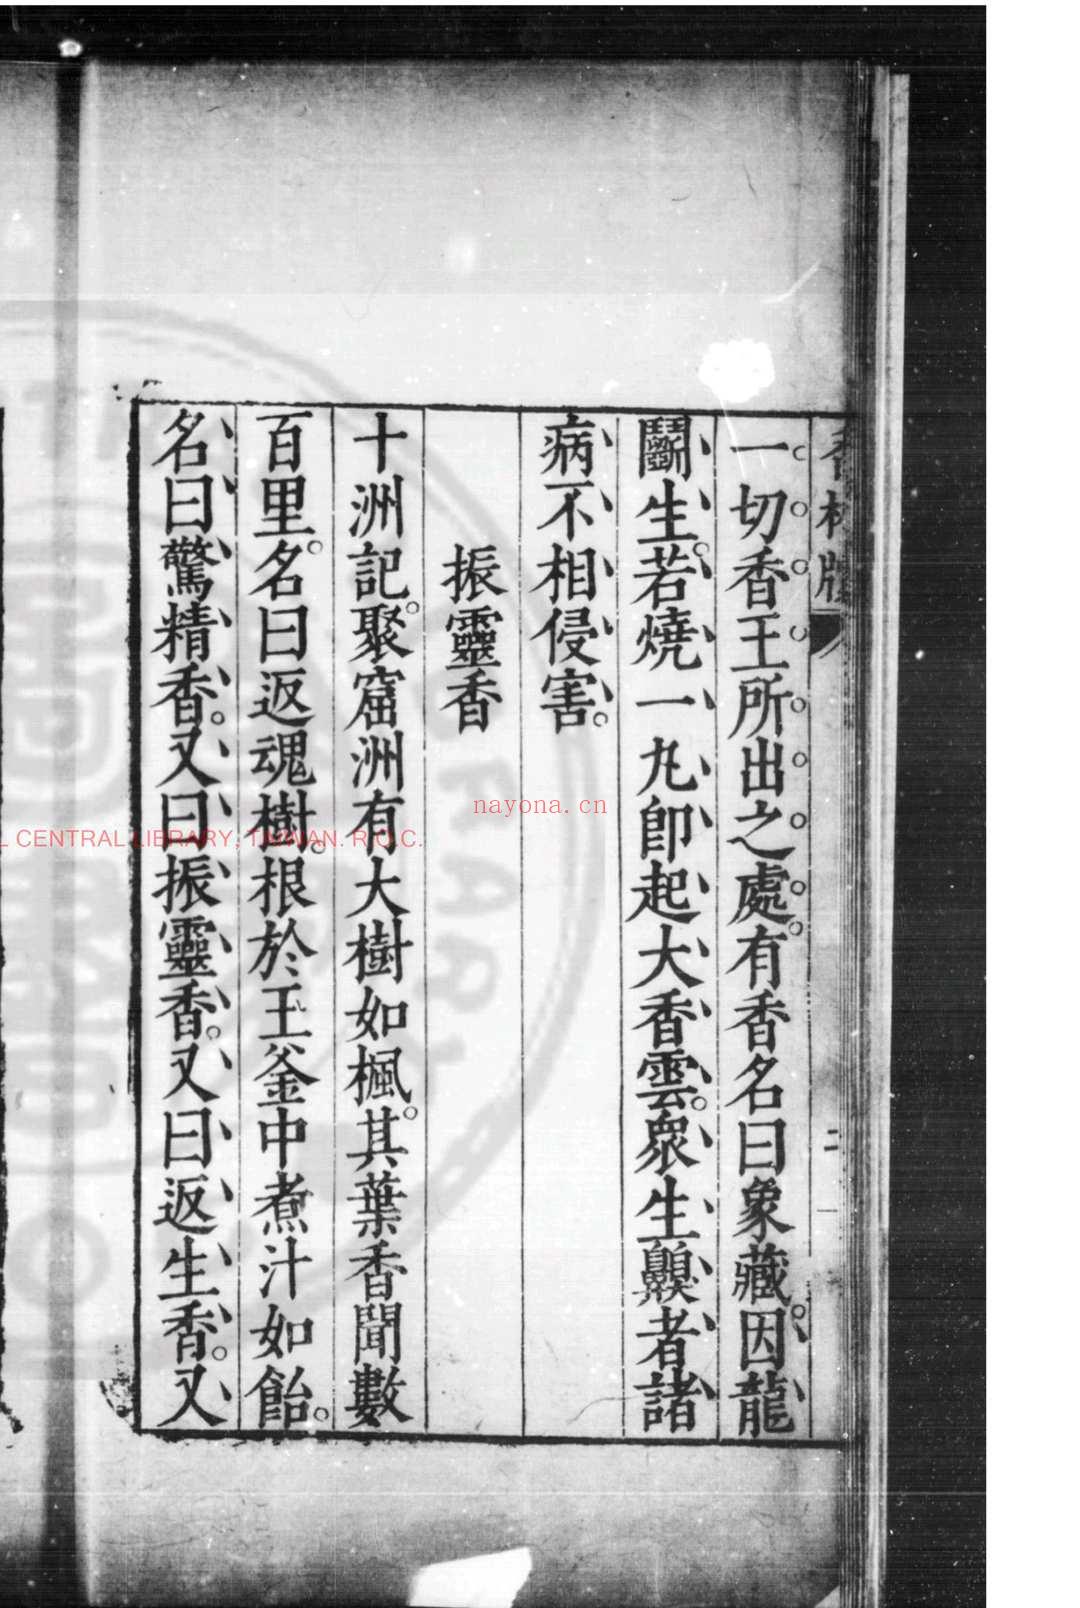 一切香王所出之處。有香名曰象藏。因龍
鬭生。若燒一丸即起大香雲。眾生齅者諸
病不相侵害。
振靈香
十洲記。聚窟洲有大樹如楓。其葉香聞數
百里。名曰返魂樹。根於王釜中煮汁如飴。
名曰驚精香。又曰振靈香。又曰返生香。又
nayona.cn
CENTRAL LIBRARY, TAIWAN. R.O.C.